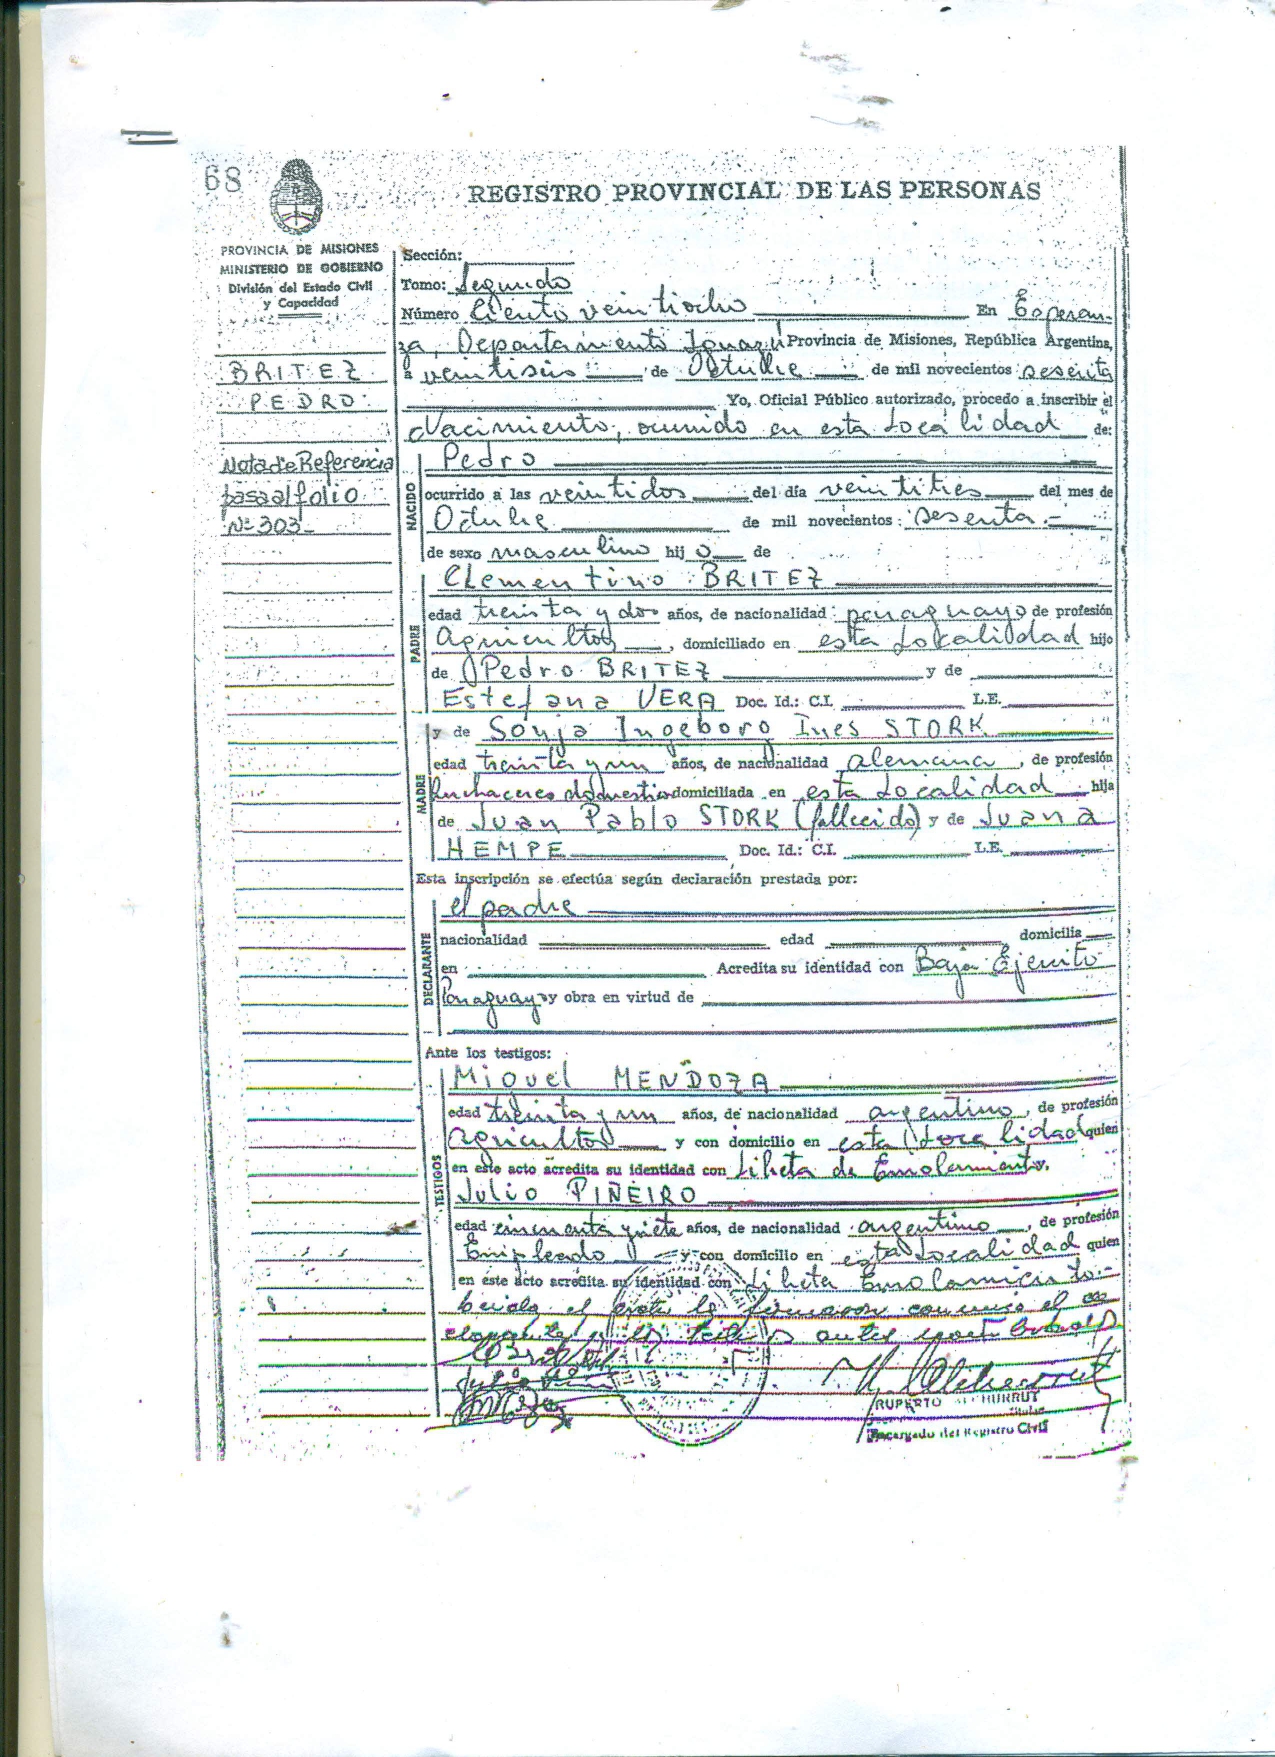 68
REGISTRO PROVINCIAL DE LAS PERSONAS
PROVINCIA DE MISIONES
MINISTERIO DE GOBIERNO
División del Estado Civil
y Capacidad
BRITEZ
PEDRO
Nota de Referencia
pasa al folio
Nº 303-
Sección:
Tomo: Segundo
Número Ciento veintiocho En Esperan-
za, Departamento Iguazú Provincia de Misiones, República Argentina,
a veintiseis de Octubre de mil novecientos sesenta
Yo, Oficial Público autorizado, procedo a inscribir el
Nacimiento, ocurrido en esta Localidad de:
NACIDO
Pedro
ocurrido a las veintidos del día veintitres del mes de
Octubre de mil novecientos sesenta.-
de sexo masculino hijo de
PADRE
Clementino BRITEZ
edad treinta y dos años, de nacionalidad paraguayo de profesión
Agricultor, domiciliado en esta Localidad hijo
de Pedro BRITEZ y de
Estefana VERA Doc. Id.: C.I. L.E.
MADRE
y de Sonja Ingeborg Ines STORK
edad treinta y un años, de nacionalidad alemana, de profesión
quehaceres domesticos domiciliada en esta Localidad hija
de Juan Pablo STORK (fallecido) y de Juana
HEMPE Doc. Id.: C.I. L.E.
Esta inscripción se efectúa según declaración prestada por:
DECLARANTE
el padre
nacionalidad edad domicilia
en Acredita su identidad con Baja Ejercito
Paraguayo y obra en virtud de
Ante los testigos:
TESTIGOS
Miguel MENDOZA
edad treinta y un años, de nacionalidad argentino, de profesión
Agricultor y con domicilio en esta Localidad quien
en este acto acredita su identidad con Libreta de Enrolamiento.
Julio PIÑEIRO
edad cincuenta y siete años, de nacionalidad argentino, de profesión
Empleado y con domicilio en esta Localidad quien
en este acto acredita su identidad con Libreta Enrolamiento.-
leida el acta la firmaron conmigo el de
clarante y los testigos antes
RUPERTO
Titular
Encargado del Registro Civil